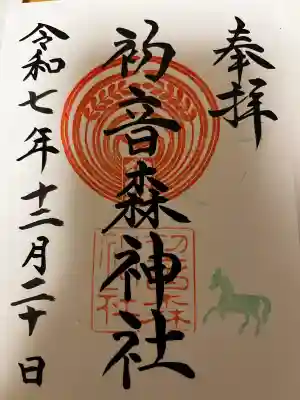 奉拝
初音森神社
初音森神社
令和七年十二月二十日